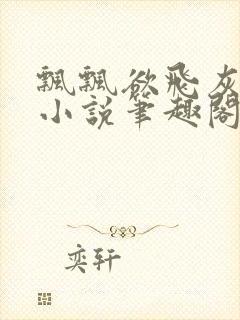 飘飘欲飞灰
小说笔趣阁
奕轩